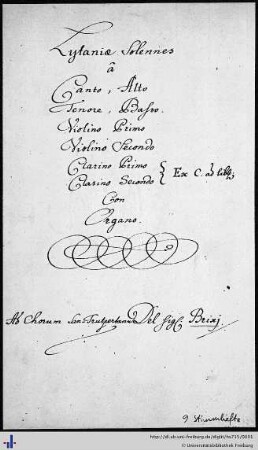 Lytaniæ Solennes
â
Canto, Alto
Tenore, Basso.
Violino Primo
Violino Secondo
Clarino Primo
Clarino Secondo } Ex C. ad lib:
Con
Organo.
Ab Chorum Del Sig: Brixj
9 Stimmhefte
http://dl.ub.uni-freiburg.de/diglit/
© Universitätsbibliothek Freiburg